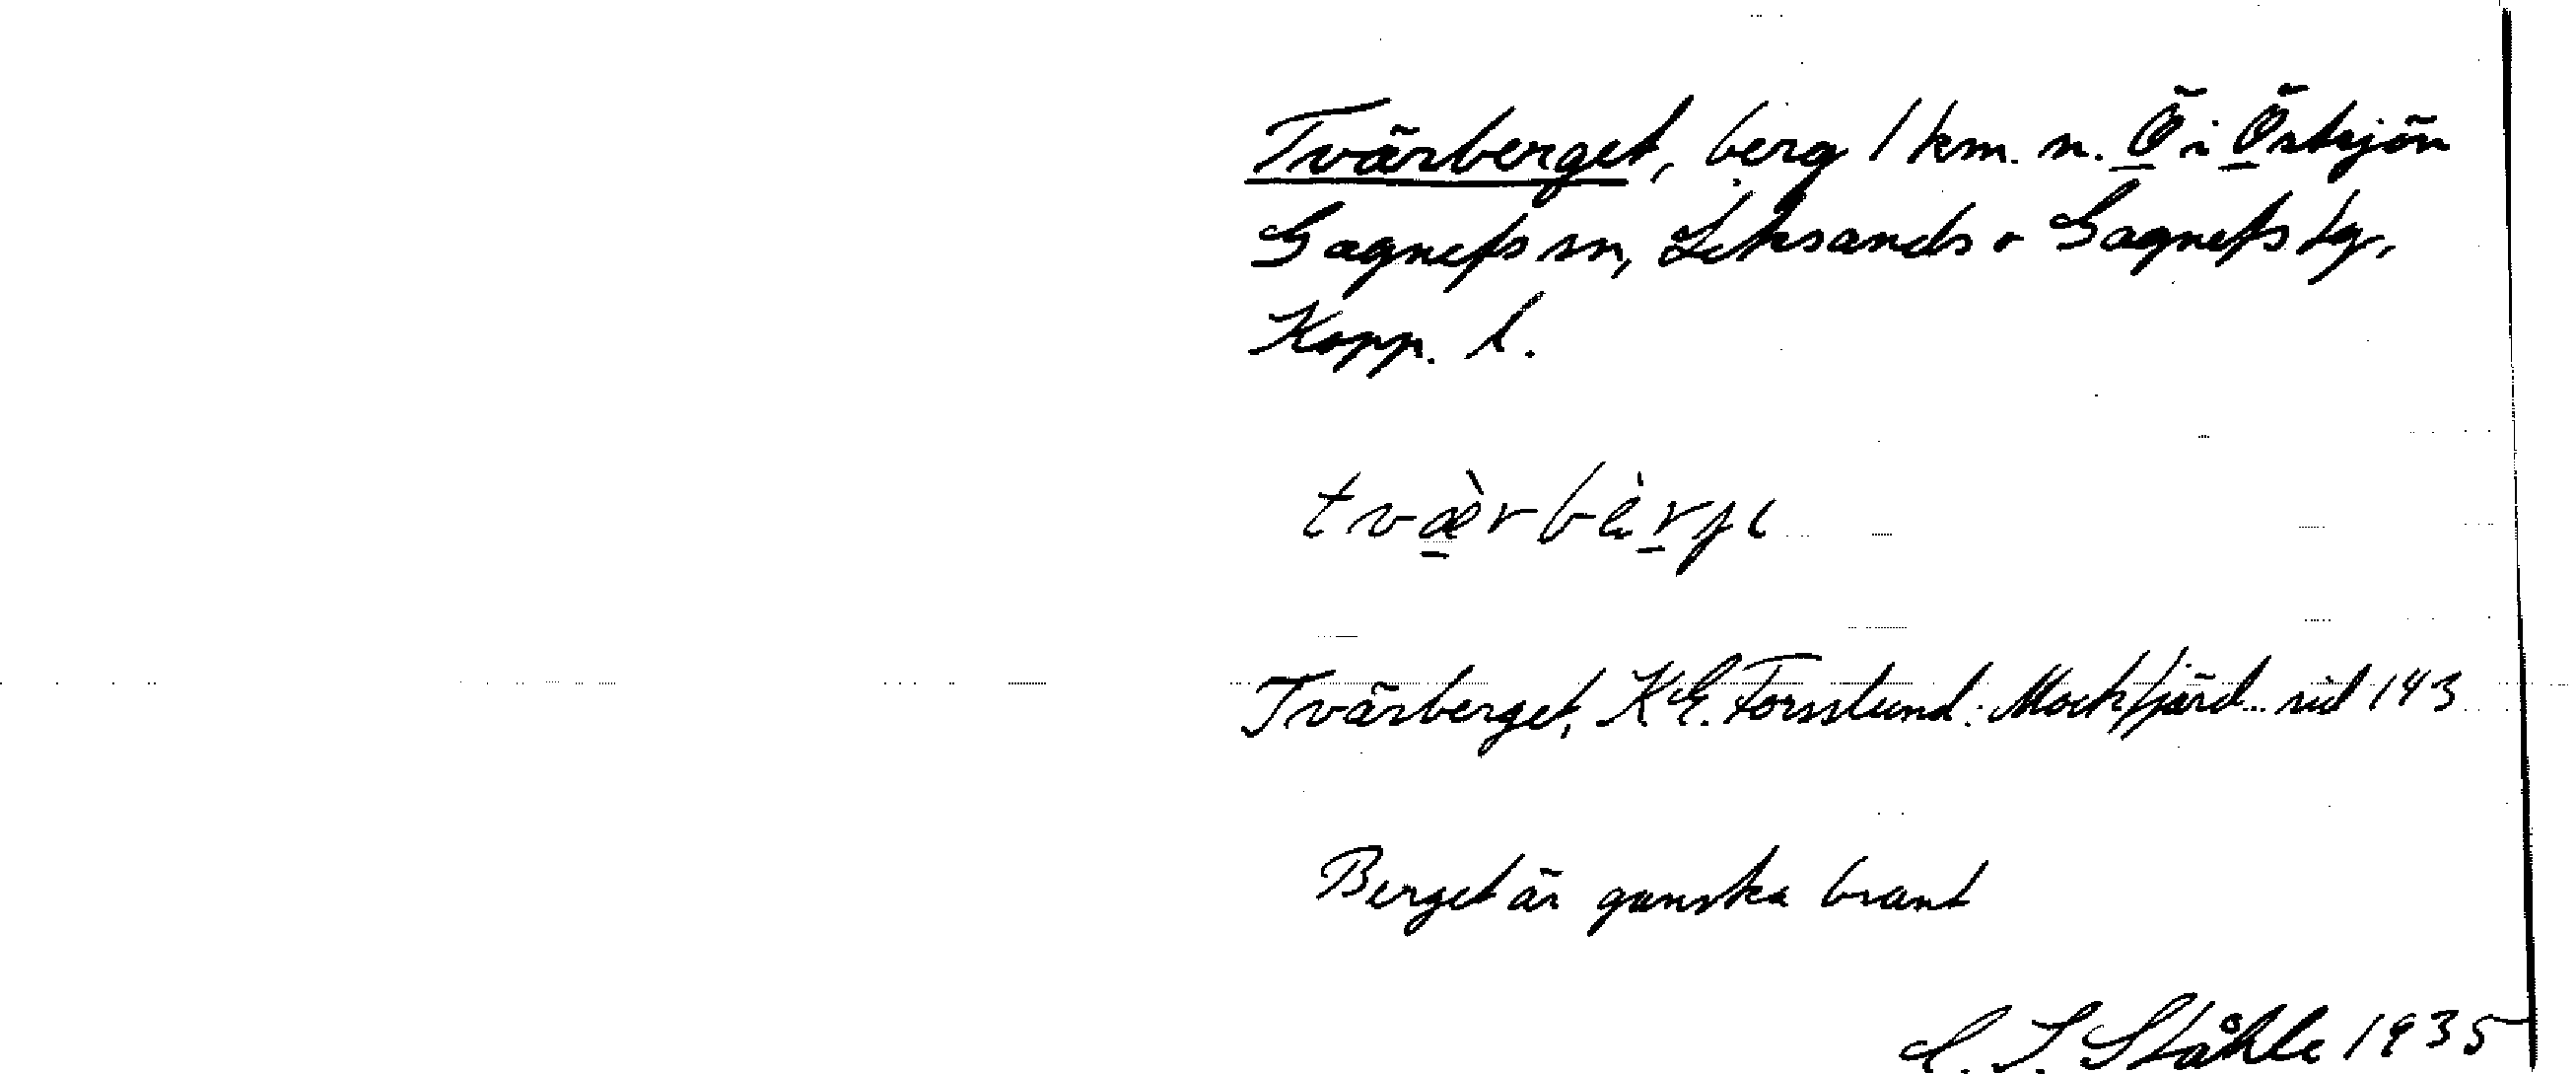 Tvärberget, berg 1 km. n. Ö i Östsjön
Gagnefs sn, Leksands o Gagnefs tg,
Kopp. l.
tvæ̀rbèrje
Tvärberget, K E. Forsslund: Mockfjärd sid 143
Berget är ganska brant
C. I. Ståhle 1935